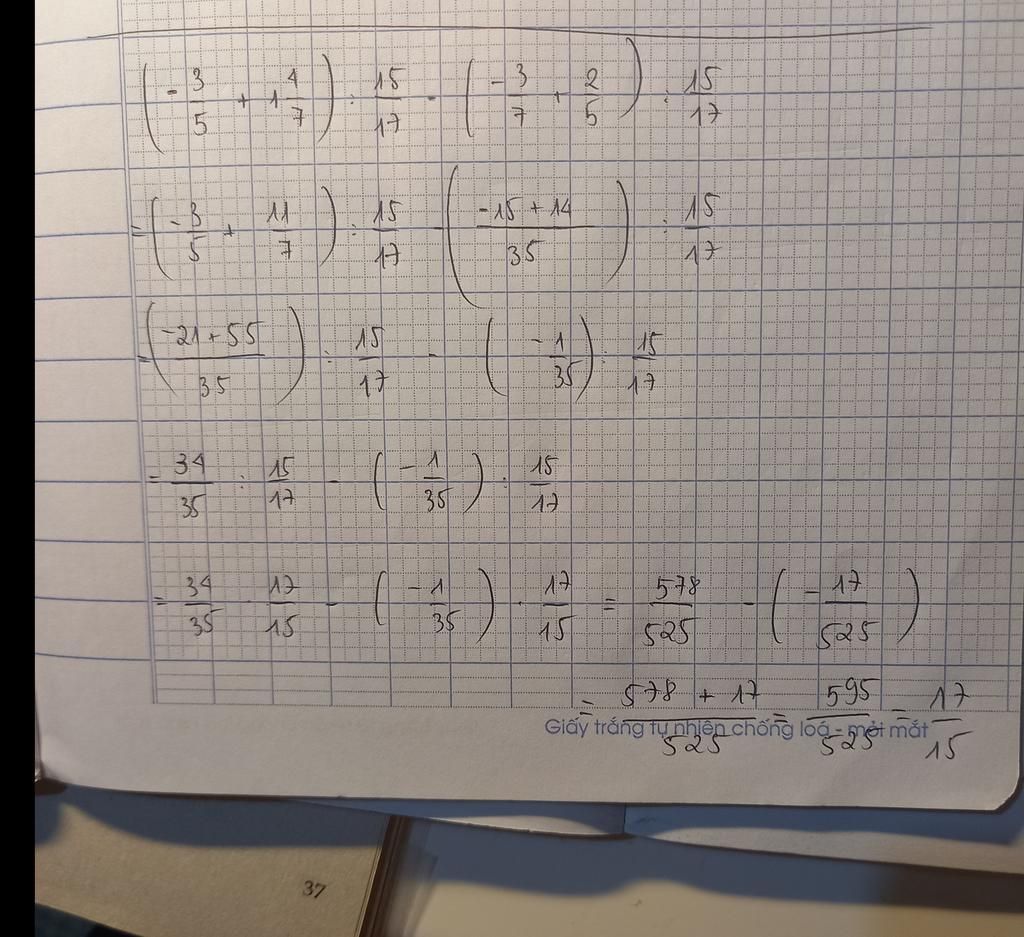 (-3/5 + 1 4/7) : 15/17 - (-3/7 + 2/5) : 15/17
= (-3/5 + 11/7) : 15/17 - ((-15 + 14)/35) : 15/17
= ((-21 + 55)/35) : 15/17 - (-1/35) : 15/17
= 34/35 : 15/17 - (-1/35) : 15/17
= 34/35 · 17/15 - (-1/35) · 17/15 = 578/525 - (-17/525)
= (578 + 17)/525 = 595/525 = 17/15
Giấy trắng tự nhiên chống loá - mỏi mắt
37